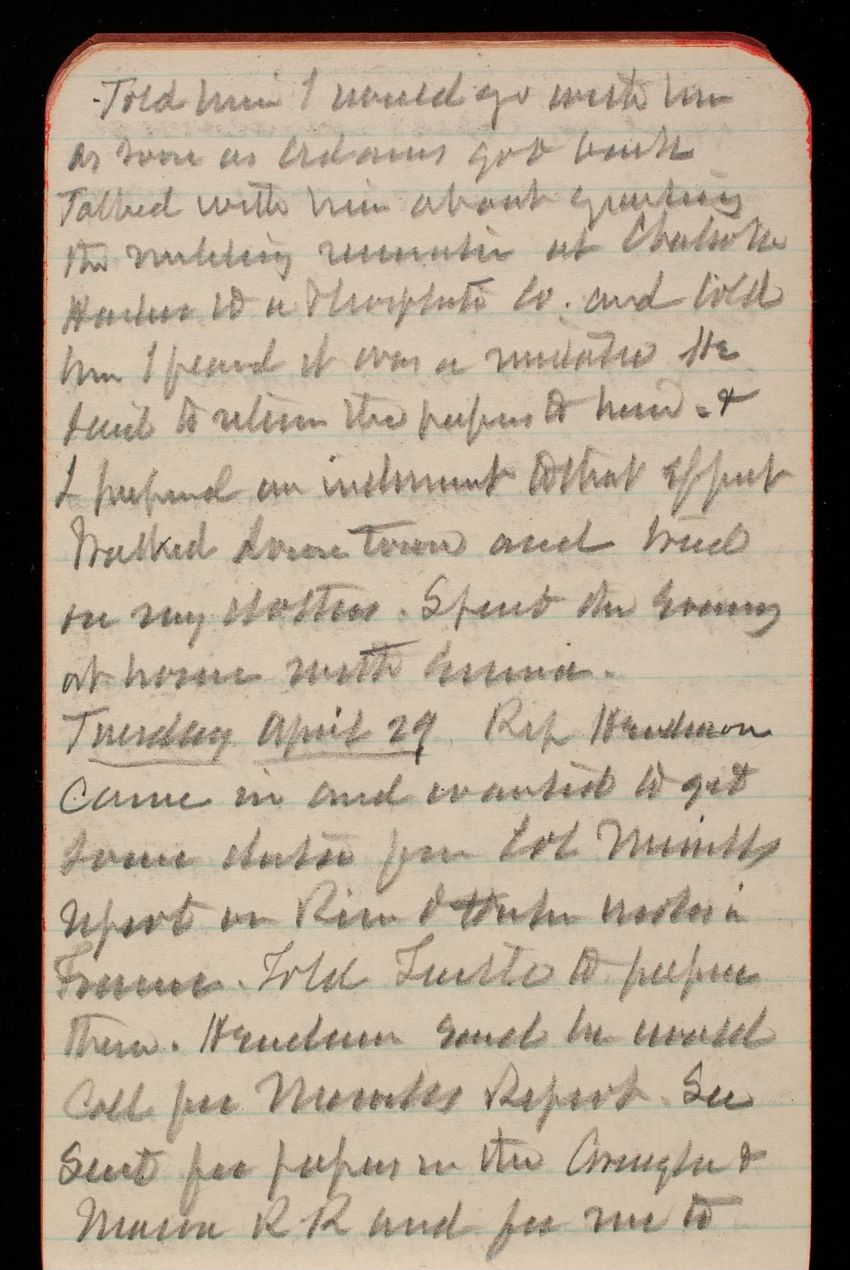 Told him I would go with him
as soon as Adams got back
Talked with him about granting
the building at Charlotte
Harbor to a Phosphate Co. and told
him I feared it was a mistake He
said to return the papers to him &
I prepared an instrument to that effect
Walked down town and tried
on my clothes. Spent the Evening
at home with Emma.
Tuesday April 29 Rep Henderson
Came in and wanted to get
some data from Col Merrills
report on River & Harbor works in
France. Told to prepare
them. Henderson said he would
Call for Merrills Report. Sec
Sent for papers in the &
Macon RR and for me to